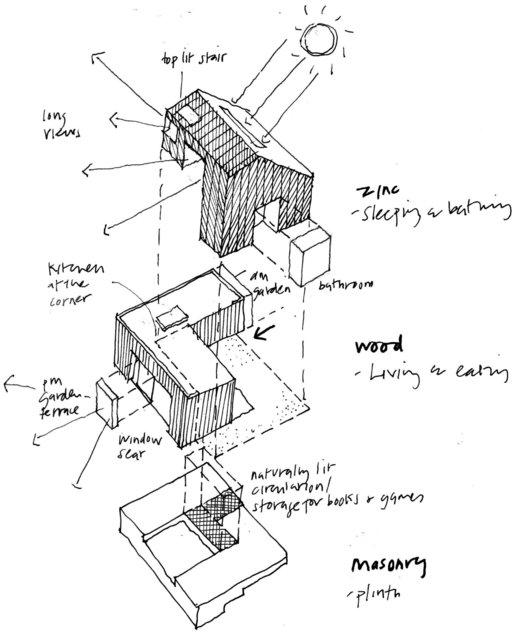 top lit stair
long
views
zinc
- sleeping & bathing
kitchen
at the
corner
am
garden
bathroom
wood
- Living & eating
pm
garden
terrace
window
seat
naturally lit
circulation/
storage for books & games
masonry
- plinth